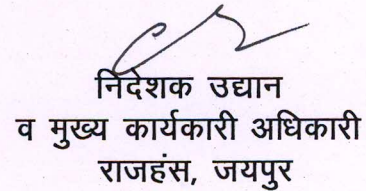 निदेशक उद्यान
व मुख्य कार्यकारी अधिकारी
राजहंस, जयपुर